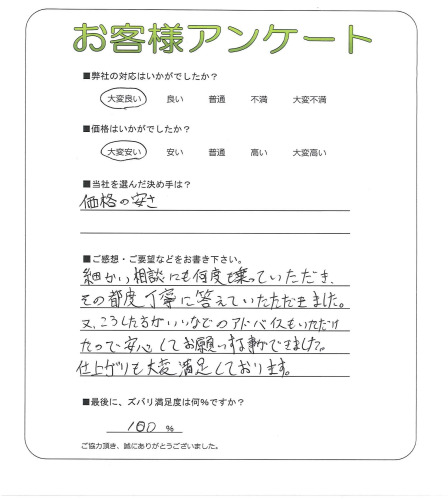 お客様アンケート
■弊社の対応はいかがでしたか?
大変良い 良い 普通 不満 大変不満
■価格はいかがでしたか?
大変安い 安い 普通 高い 大変高い
■当社を選んだ決め手は?
価格の安さ
■ご感想・ご要望などをお書き下さい。
細かい相談にも何度も乗っていただき、
その都度丁寧に答えていただだきました。
又、こうした方がいいなどのアドバイスもいただけ
たので安心してお願いする事ができました。
仕上がりも大変満足しております。
■最後に、ズバリ満足度は何%ですか?
100 %
ご協力頂き、誠にありがとうございました。